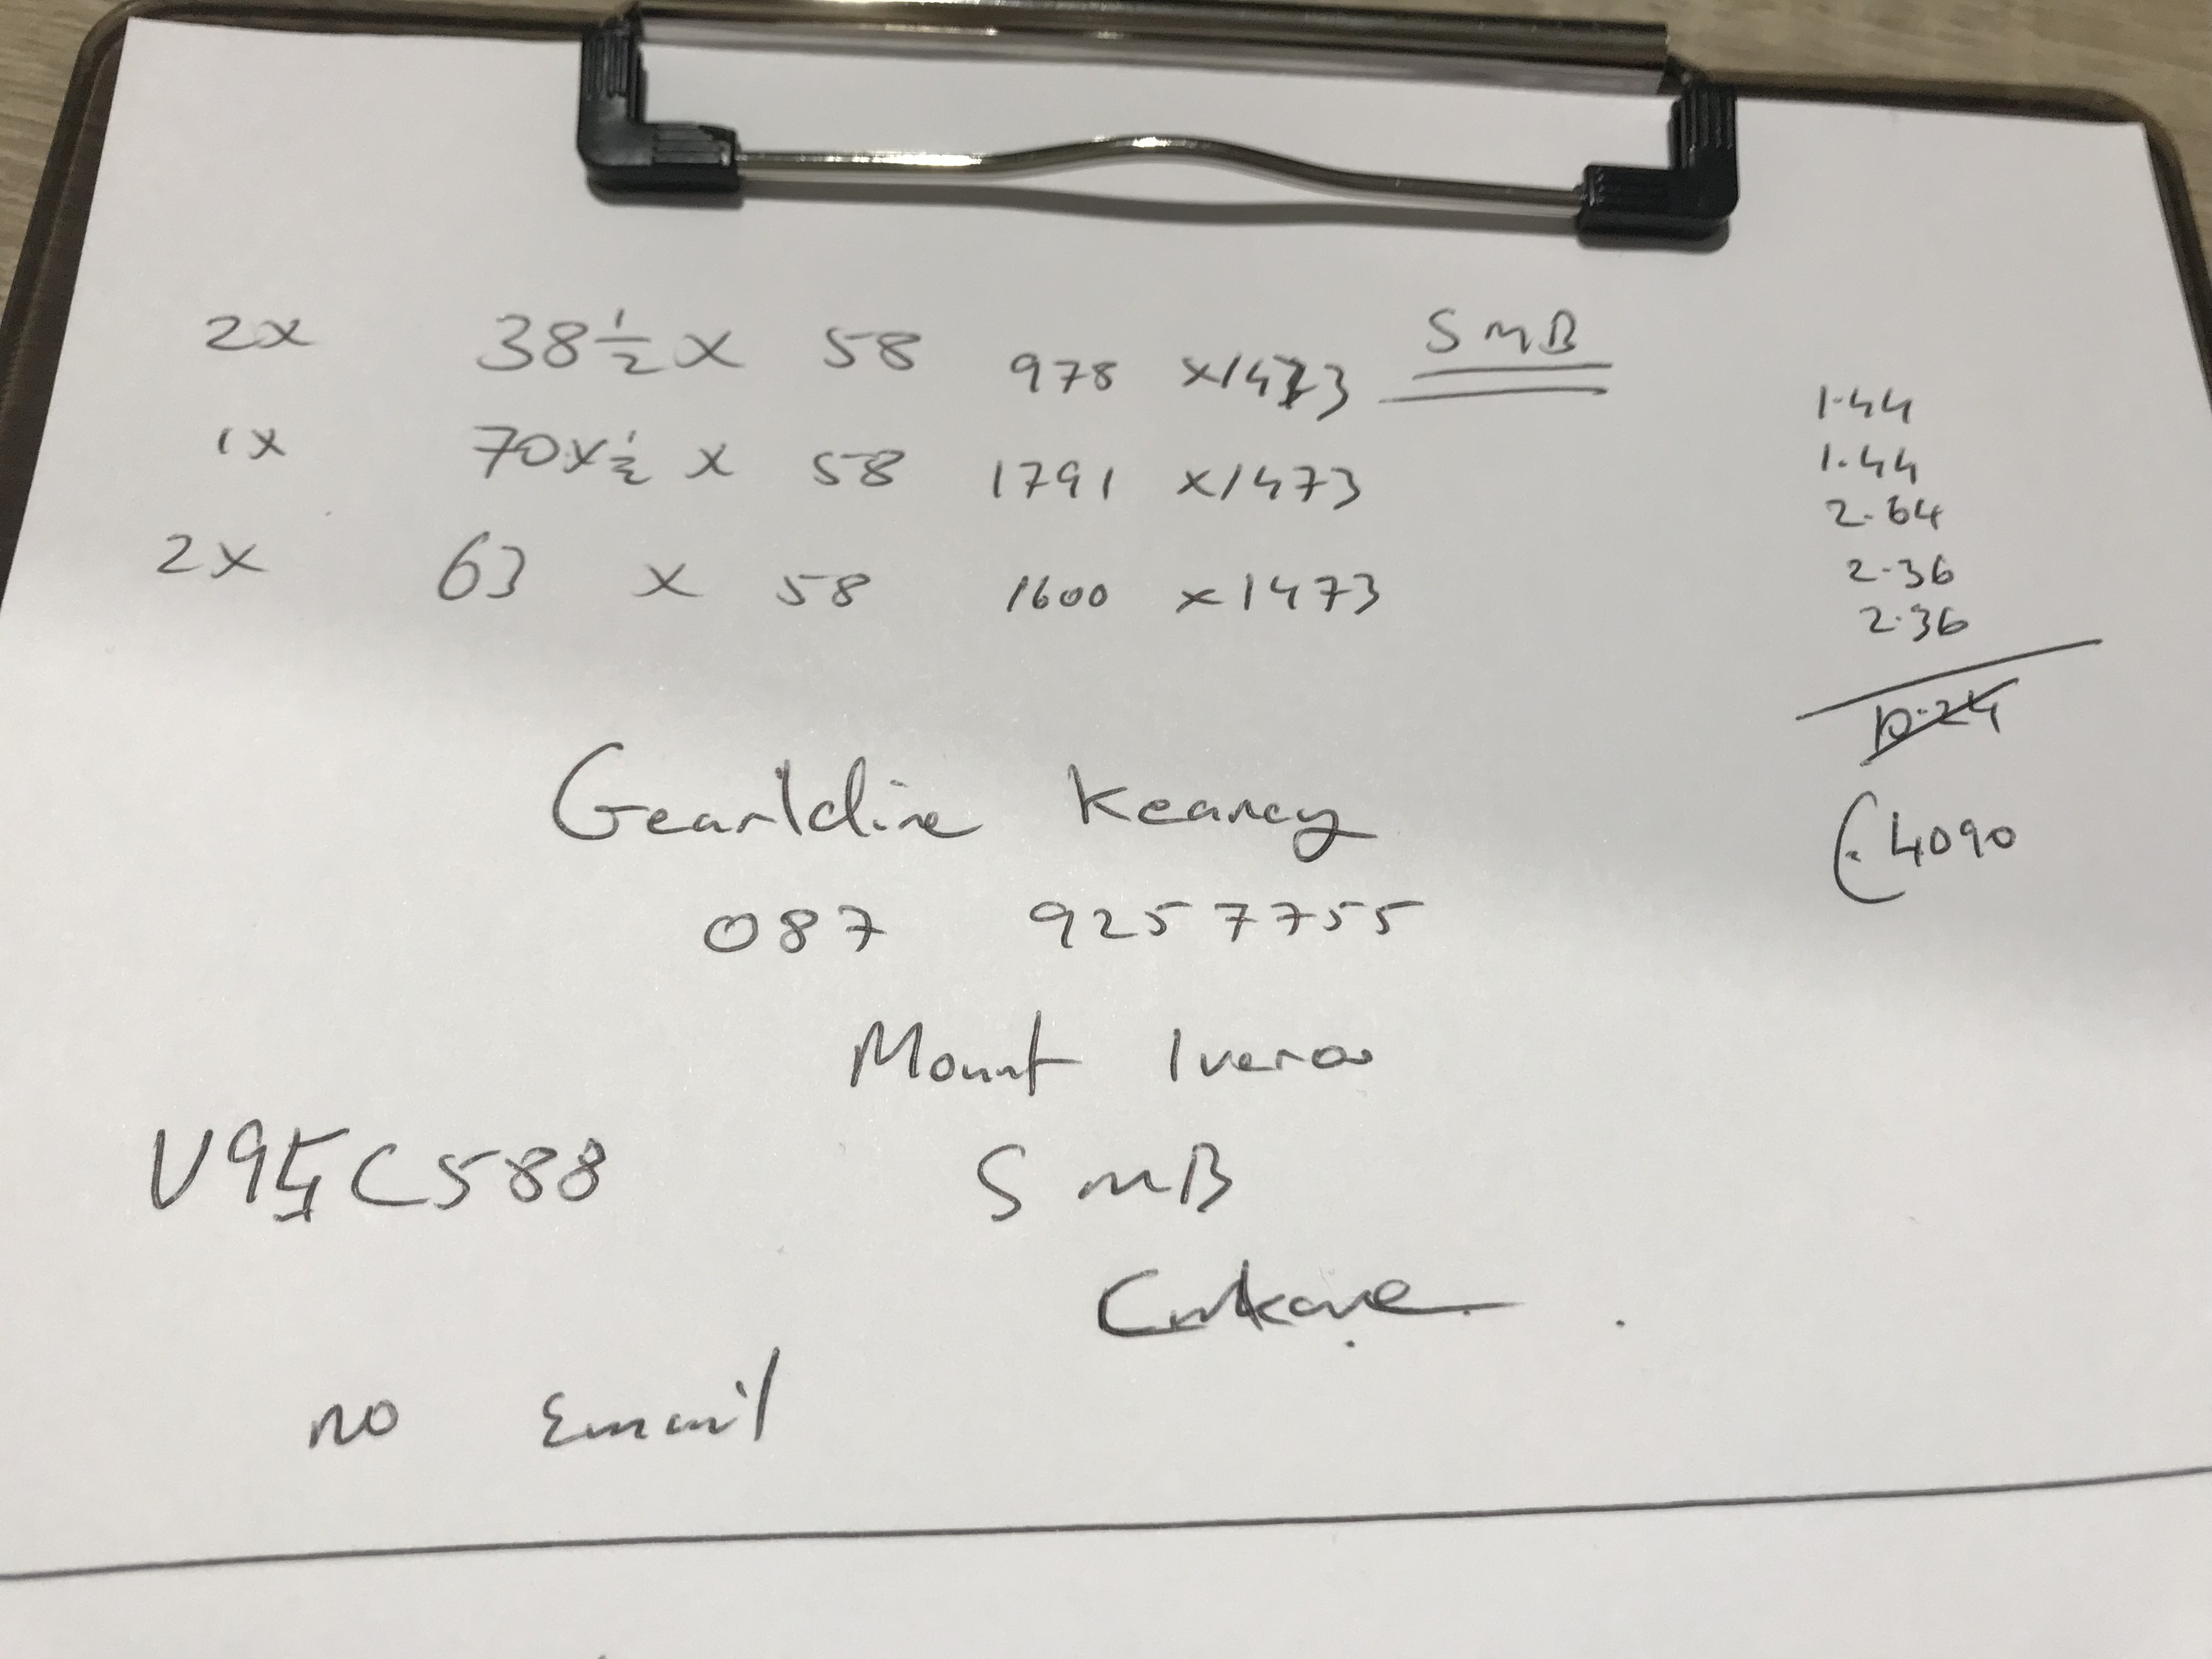 2x 38½ x 58 978 x1473 SMB
1x 70x½ x 58 1791 x1473
2x 63 x 58 1600 x1473
1.44
1.44
2.64
2.36
2.36
10.24
4090
Gearldine Kearney
087 9257755
Mount
SMB
C588
no Email